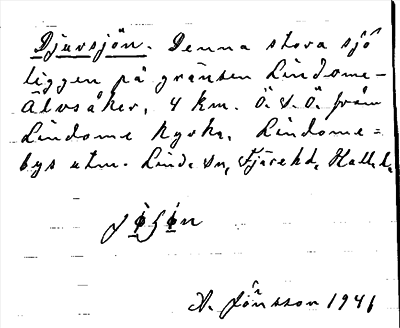 Djursjön. Denna stora sjö
ligger på gränsen Lindome-
Älvsåker, 4 km. Ö.S.Ö. från
Lindome kyrka. Lindome=
bys utm. Lind. sn, Fjäre hd, Hall. l.
A. Jönsson 1941